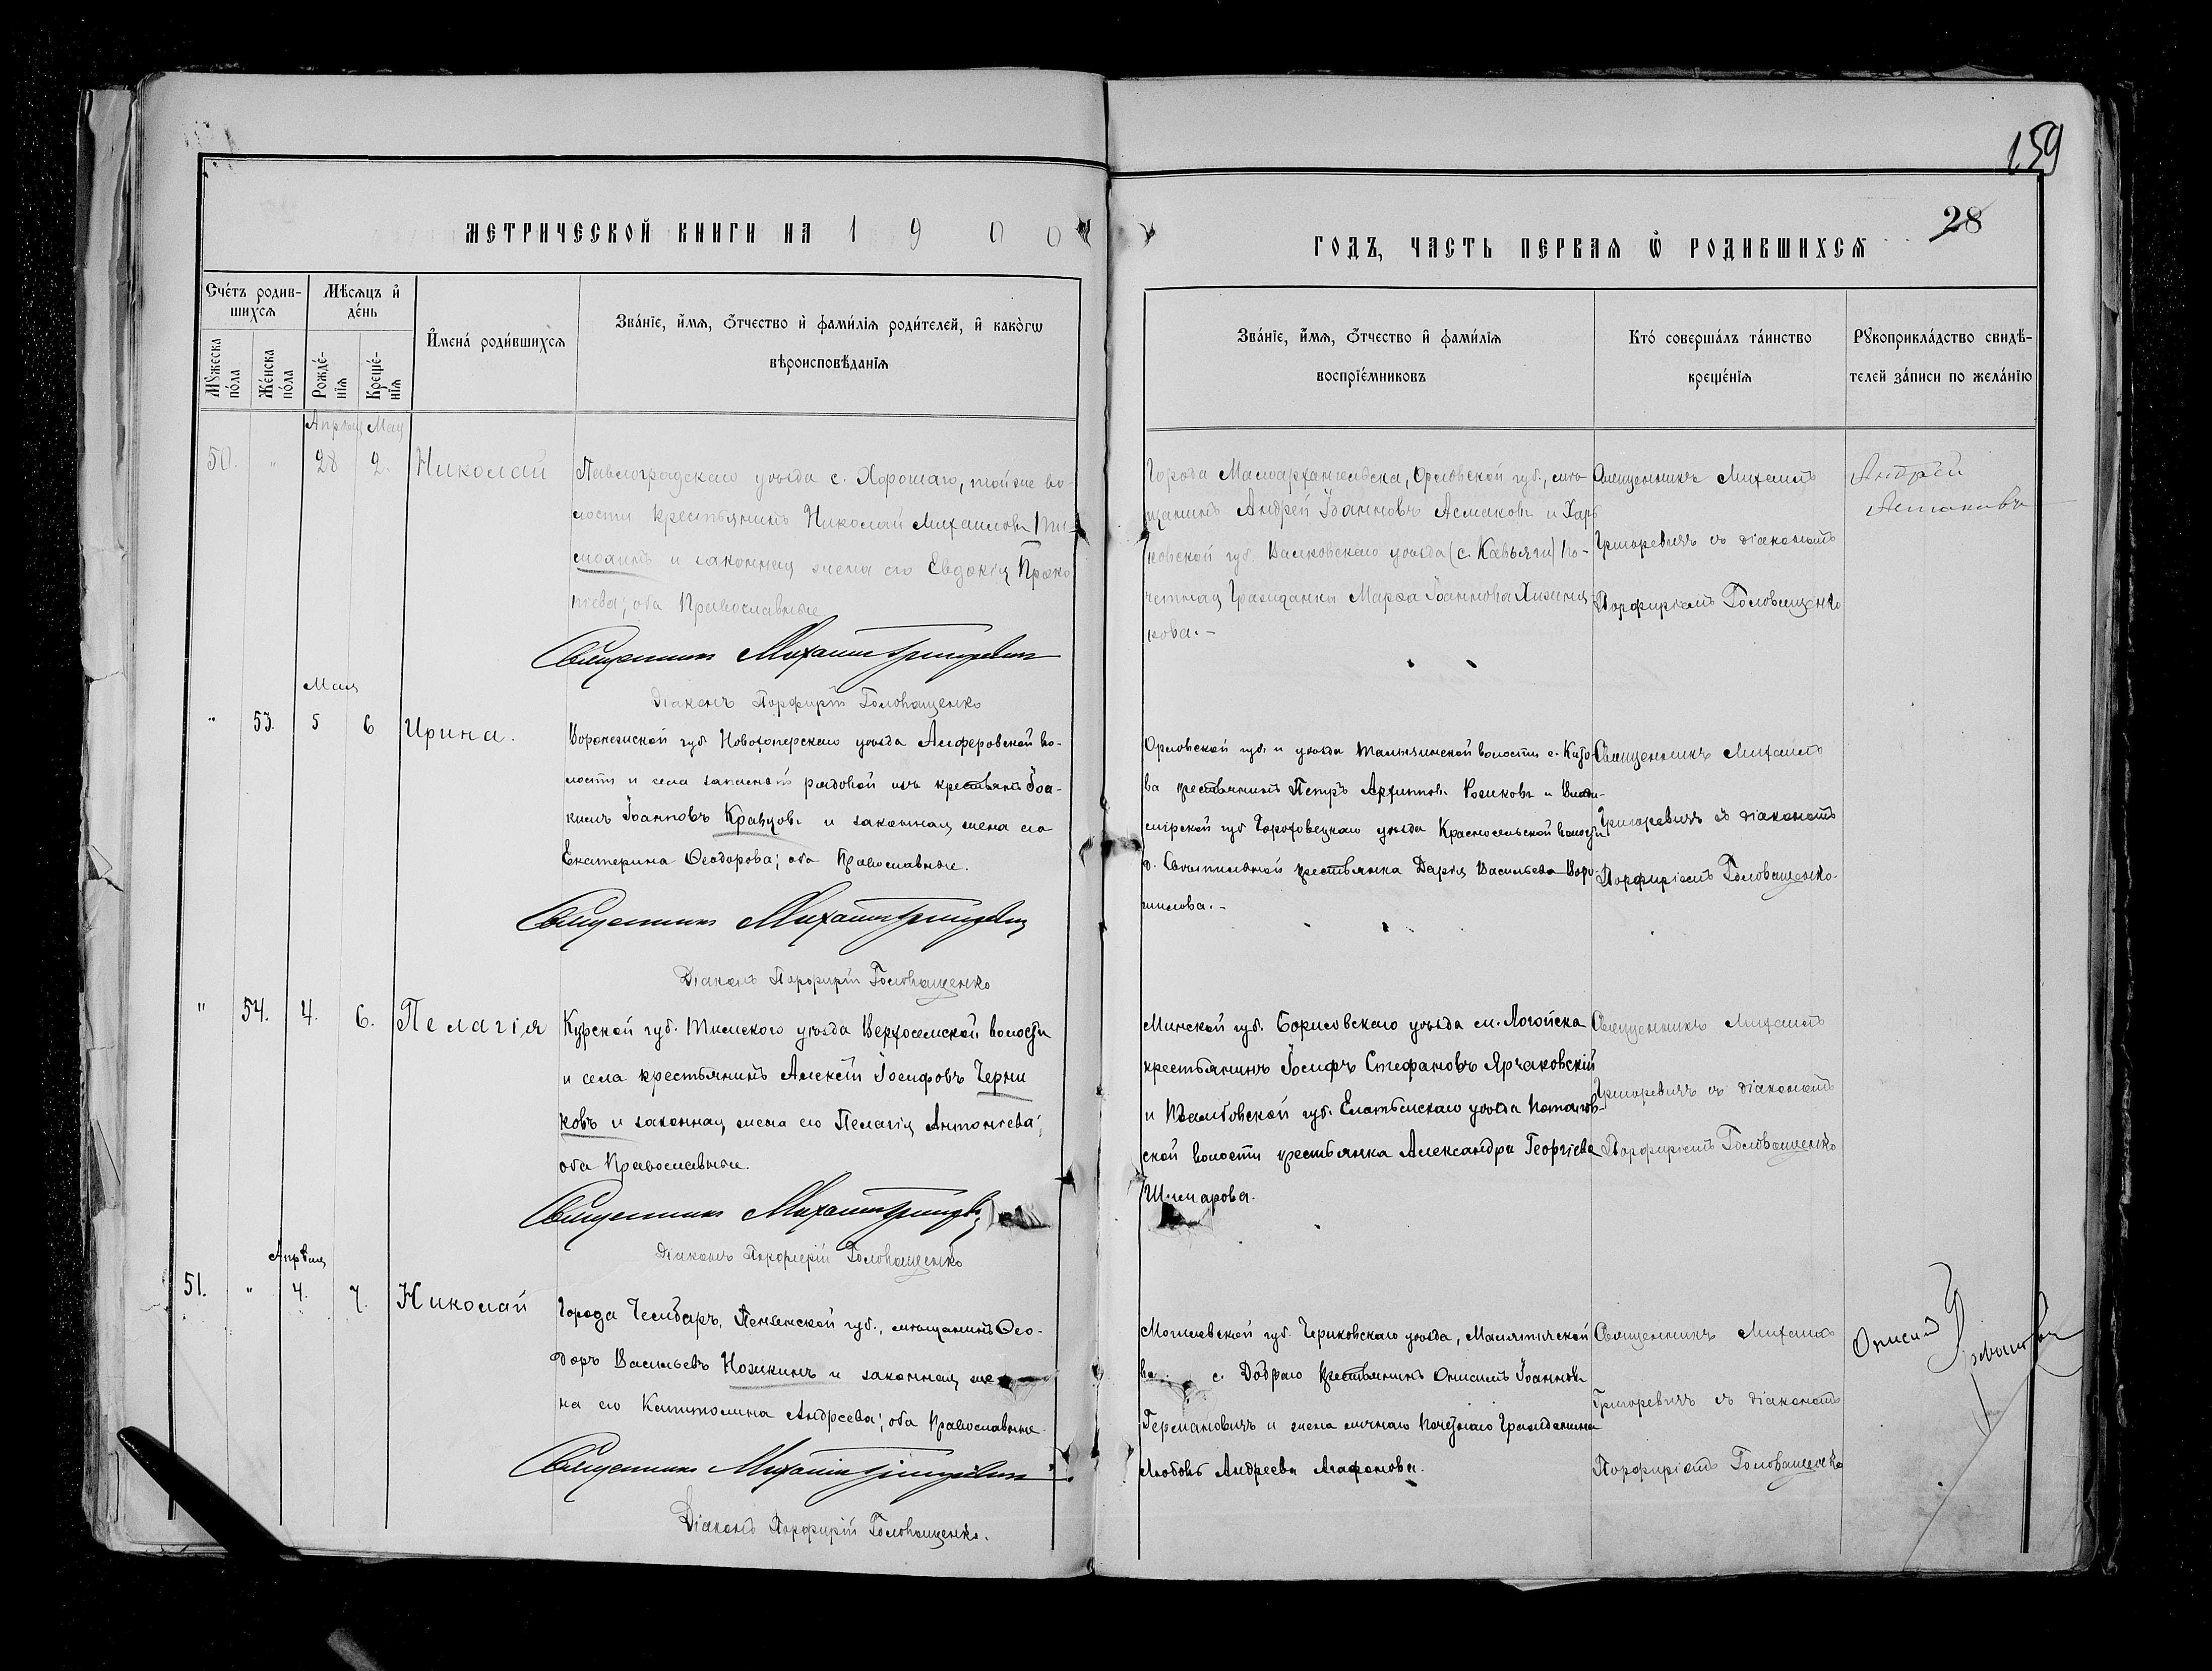 159
28
МЕТРИЧЕСКОЙ КНИГИ НА 1900
ГОДЪ, ЧАСТЬ ПЕРВАЯ Ѡ РОДИВШИХСѦ
Сче́тъ родив-
шихсѧ
Мꙋжеска
по́ла
Же́нска
по́ла
Мѣсѧцъ и҆
де́нь
Рожде́-
нїѧ
Креще́-
нїѧ
И҆мена́ роди́вшихсѧ
Зва́нїе, и҆́мѧ, ѻ҆́тчество и҆ фами́лїѧ роди́телей, и҆ како́гѡ
вѣроисповѣ́данїѧ
Зва́нїе, и҆́мѧ, ѻ҆́тчество и҆ фами́лїѧ
воспрїе́мниковъ
Кто́ соверша́лъ та́инство
креще́нїѧ
Рꙋкоприкла́дство свидѣ́-
телей за́писи по жела́нїю
Апрѣля Мая
50. " 28 2. Николай
Павлоградскаго уѣзда с. Хорошаго, той же во-
лости крестьянинъ Николай Михаиловъ
и законная жена его Евдокія Проко-
піева; оба Православные
Священникъ Михаилъ Григоревичъ
Діаконъ Порфирій Головащенко
Города Малоархангельска, Орловской губ., мѣ-
щанинъ Андрей Іоанновъ Асмаковъ и Харь-
ковской губ. Валковскаго уѣзда (с. Ковяги) По-
четная Гражданка Марѳа Іоаннова
кова.-
Священникъ Михаилъ
Григоревичъ съ діакономъ
Порфиріемъ Головащенко
Андрей
Асмаковъ
Мая
" 53. 5 6 Ирина.
Воронежской губ. Новохоперскаго уѣзда Алферовской во-
лости и села запасный рядовой изъ крестьянъ Іоа-
кимъ Іоанновъ Кравцовъ и законная жена его
Екатерина Ѳеодорова; оба Православные.
Священникъ Михаилъ Григоревичъ
Діаконъ Порфирій Головащенко
Орловской губ. и уѣзда волости с.
ва крестьянинъ Петръ Архиповъ и Влади-
мірской губ. Гороховецкаго уѣзда Красносельской волости
д. крестьянка Дарія Васильева
Священникъ Михаилъ
Григоревичъ съ діакономъ
Порфиріемъ Головащенко.
" 54. 4. 6. Пелагія
Курской губ. Тимскаго уѣзда Верхосемской волости
и села крестьянинъ Алексѣй Іосифовъ Черни
ковъ и законная жена его Пелагія Антоніева;
оба Православные.
Священникъ Михаилъ
Діаконъ Порфирій Головащенко
Минской губ. Борисовскаго уѣзда м. Логойска
крестьянинъ Іосифъ Стефановъ Ярчаковскій
и Тамбовской губ. Елатьмскаго уѣзда
ской волости крестьянка Александра Георгіева
Шимарова.
Священникъ Михаилъ
Григоревичъ съ діакономъ
Порфиріемъ Головащенко
Апрѣля
51. " 4. 7. Николай
Города Чембаръ, Пензенской губ., мѣщанинъ Ѳео-
доръ Васильевъ Ножкинъ и законная же
на его Капитолина Андреева; оба Православные.
Священникъ Михаилъ Григоревичъ
Діаконъ Порфирій Головащенко.
Могилевской губ. Чериковскаго уѣзда, Малятичской
во. с. Добраго крестьянинъ Онисимъ Іоанновъ
Германовичъ и жена личнаго Почетнаго Гражданина
Любовь Андреева Агафонова.
Священникъ Михаилъ
Григоревичъ съ діакономъ
Порфиріемъ Головащенко
Онисим